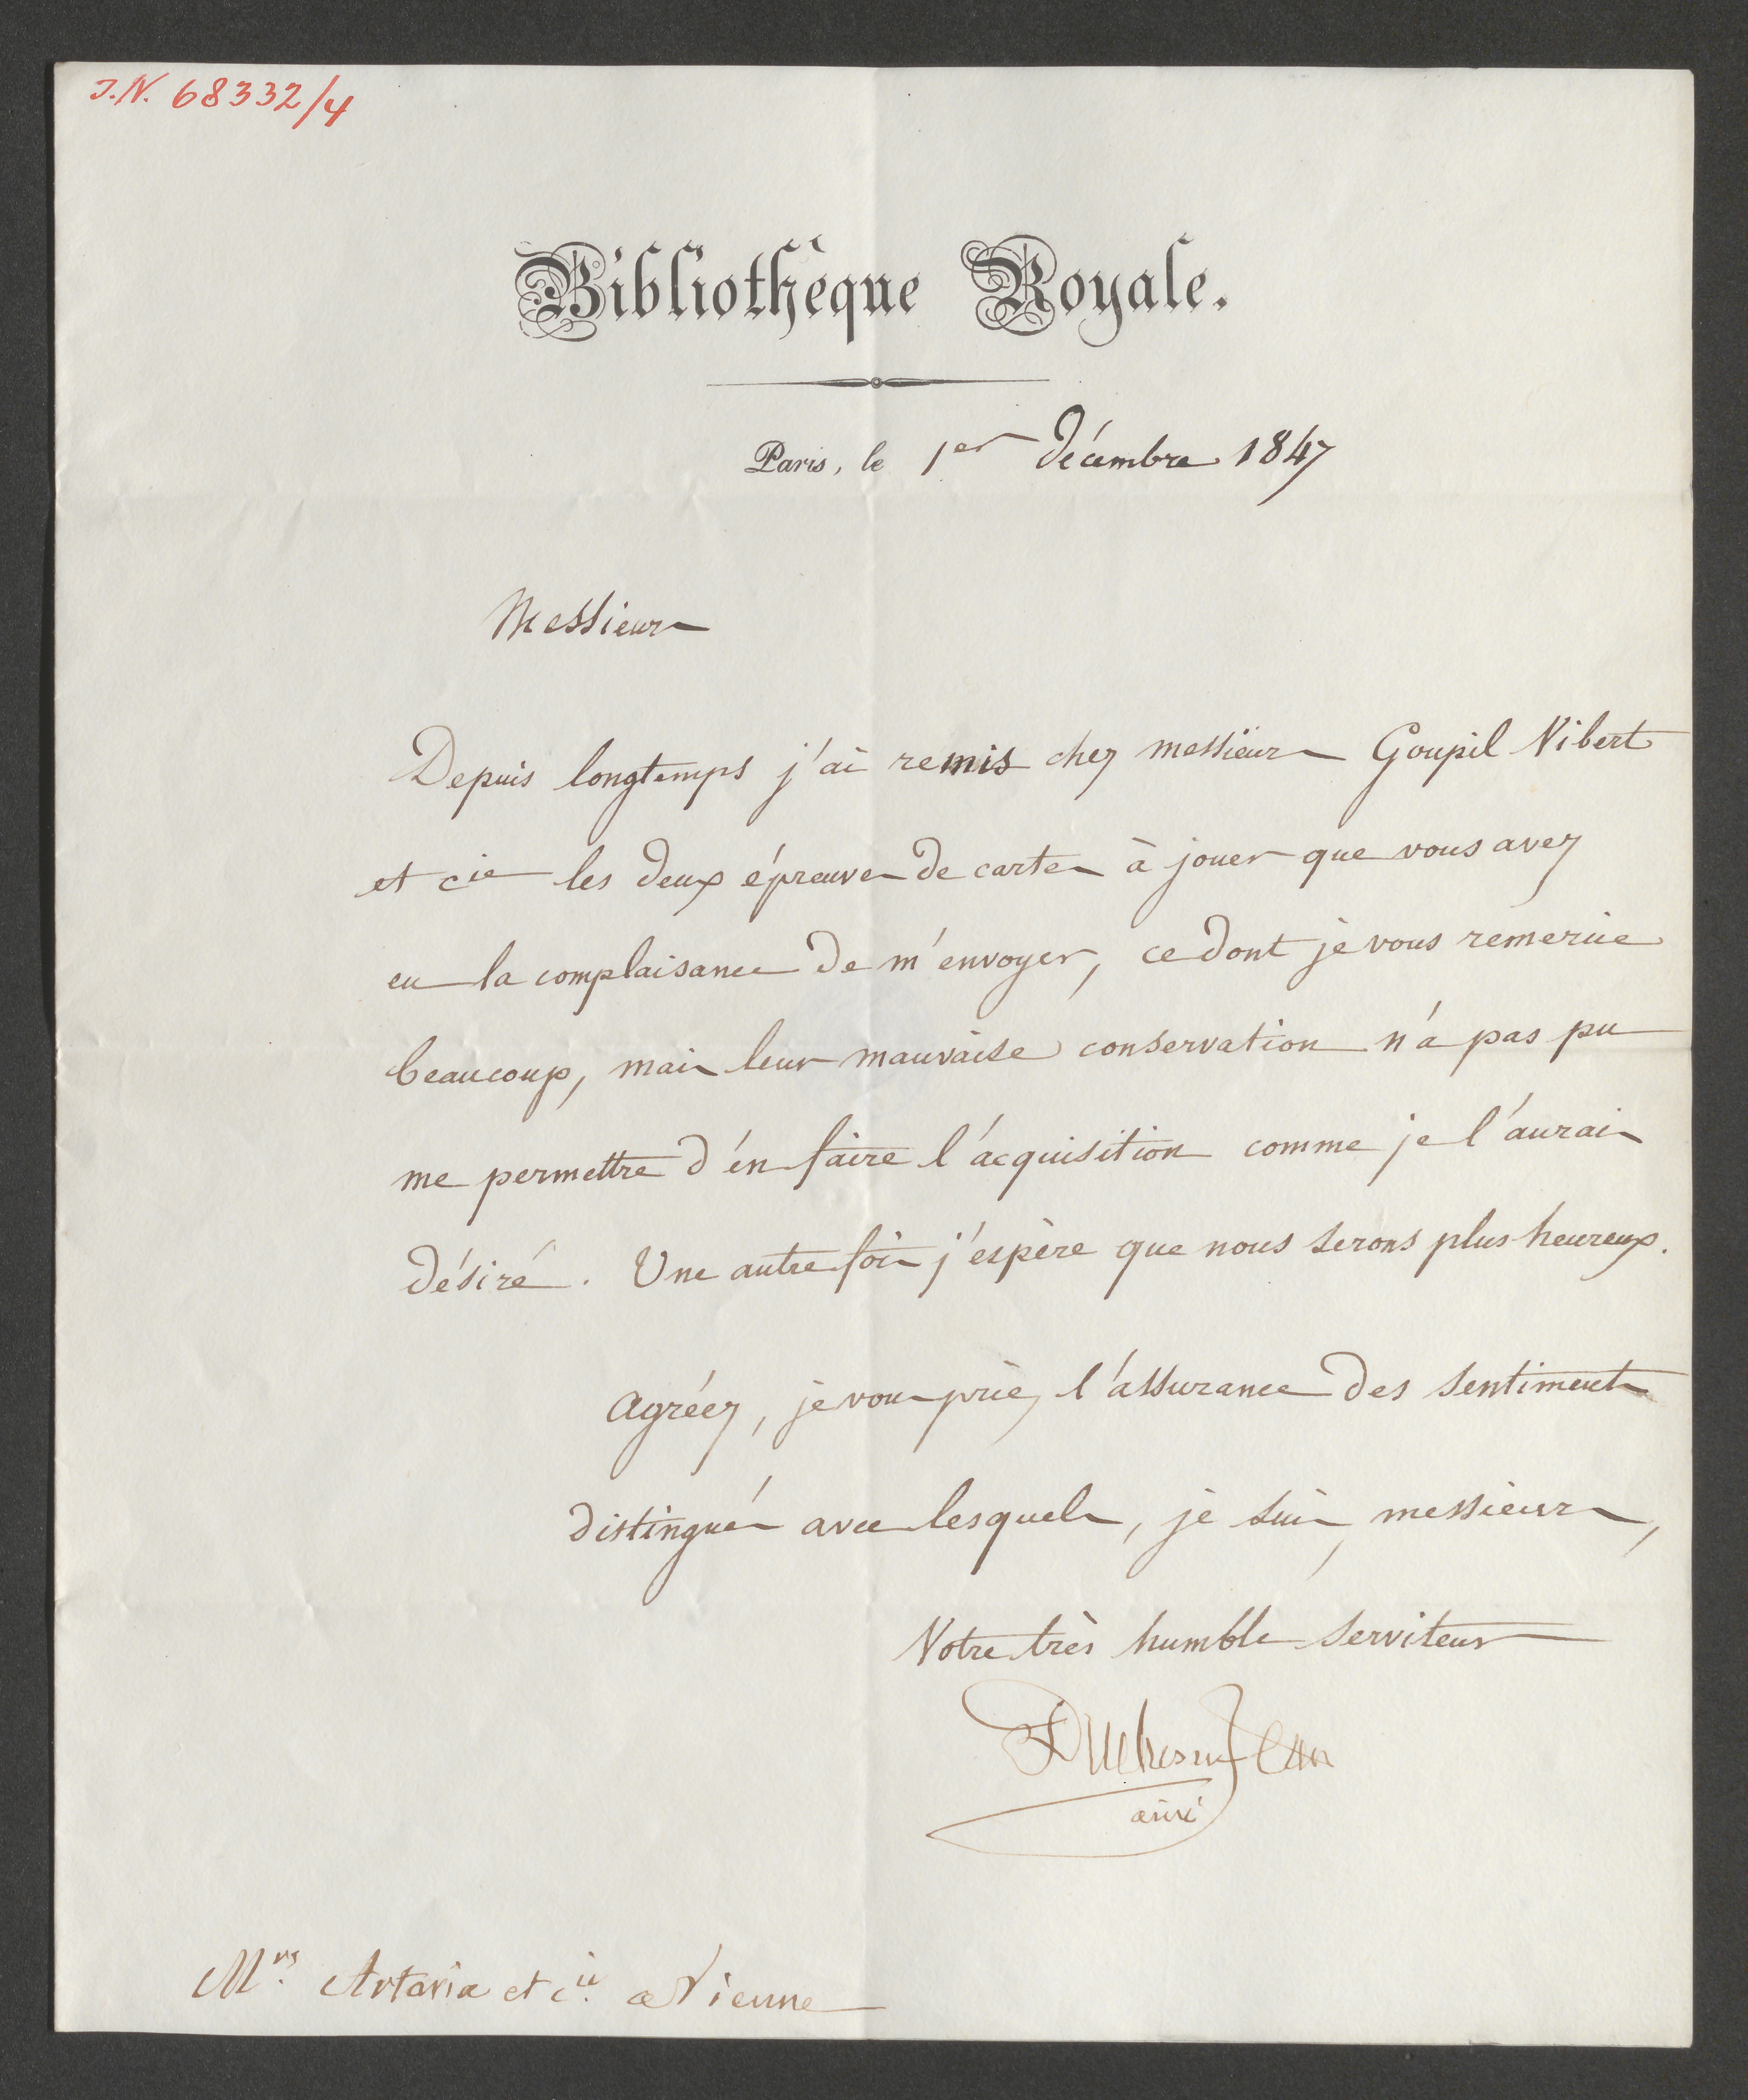 J.N. 68332/4
Bibliothèque Royale.
Paris, le 1er décembre 1847
Messieurs
Depuis longtemps j'ai remis chez messieurs Goupil Vibert
et cie les deux épreuves de cartes à jouer que vous avez
eu la complaisance de m'envoyer, ce dont je vous remercie
beaucoup, mais leur mauvaise conservation n'a pas pu
me permettre d'en faire l'acquisition comme je l'aurais
désiré. Une autre fois j'espère que nous serons plus heureux.
agréez, je vous prie, l'assurance des sentiments
distingués avec lesquels, je suis, messieurs,
Votre très humble serviteur
Duchesne
ainé
Mrs. Artaria et cie. a Vienne